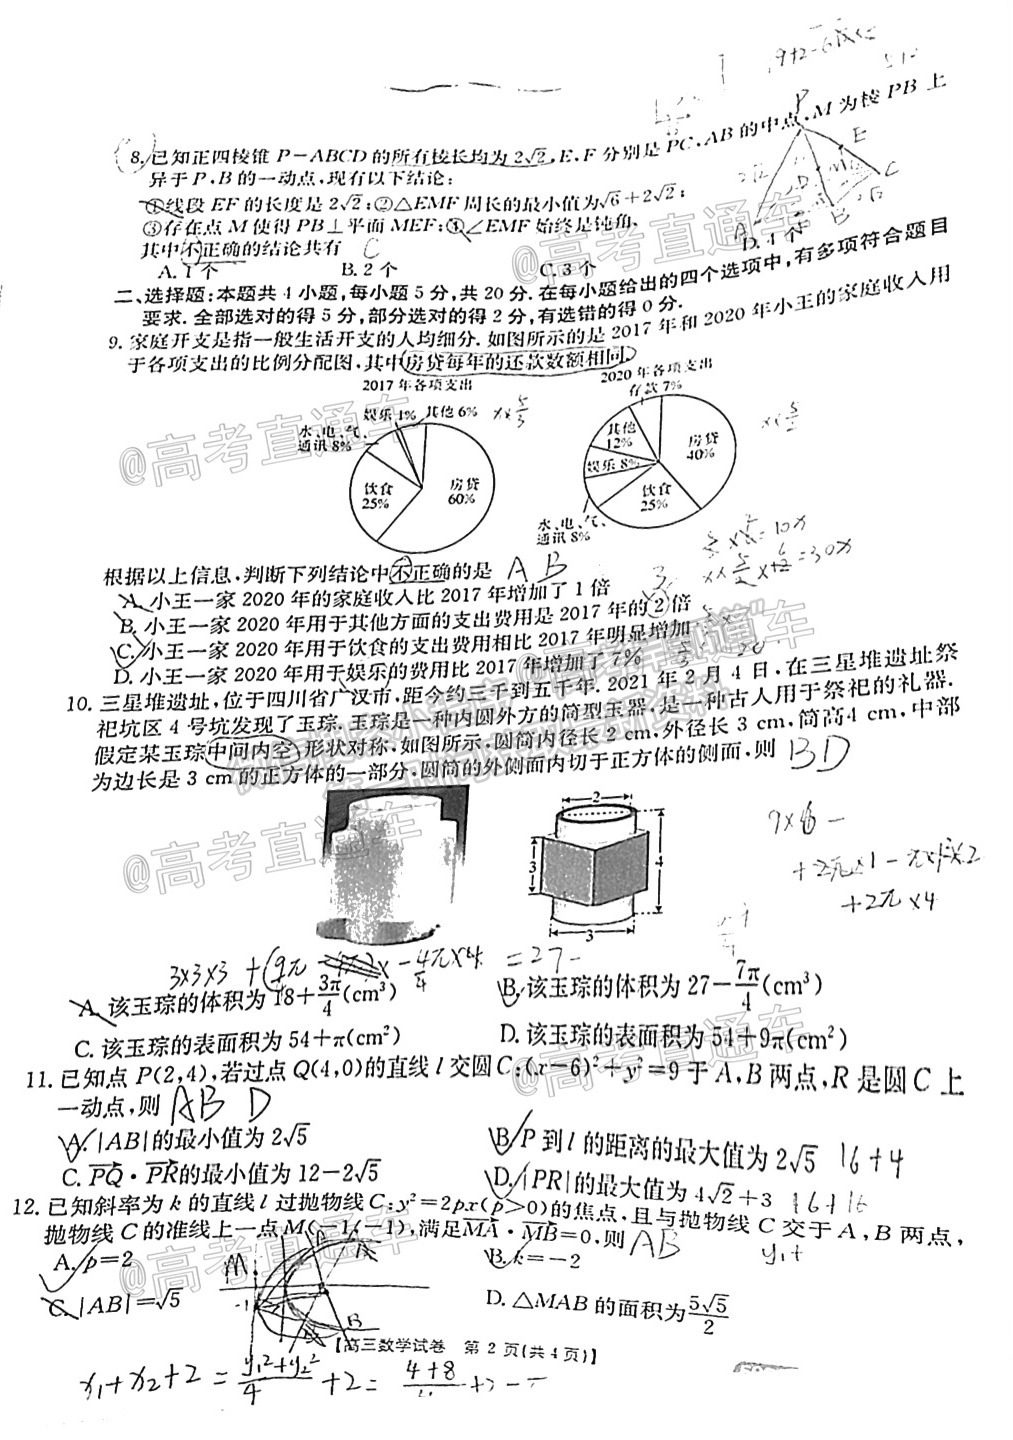 8. 已知正四棱锥 P-ABCD 的所有棱长均为 2√2, E, F 分别是 PC, AB 的中点, M 为棱 PB 上
异于 P, B 的一动点, 现有以下结论:
①线段 EF 的长度是 2√2; ②△EMF 周长的最小值为√6+2√2;
③存在点 M 使得 PB⊥平面 MEF; ④∠EMF 始终是钝角.
其中不正确的结论共有 C
A. 1 个 B. 2 个 C. 3 个 D. 4 个
P
E
C
D
M
B
A
二、选择题: 本题共 4 小题, 每小题 5 分, 共 20 分. 在每小题给出的四个选项中, 有多项符合题目
要求. 全部选对的得 5 分, 部分选对的得 2 分, 有选错的得 0 分.
9. 家庭开支是指一般生活开支的人均细分. 如图所示的是 2017 年和 2020 年小王的家庭收入用
于各项支出的比例分配图, 其中房贷每年的还款数额相同.
2017 年各项支出
娱乐 1% 其他 6%
水、电、气、
通讯 8%
饮食
25%
房贷
60%
2020 年各项支出
存款 7%
其他
12%
娱乐 8%
房贷
40%
饮食
25%
水、电、气、
通讯 8%
根据以上信息, 判断下列结论中不正确的是 A B
A. 小王一家 2020 年的家庭收入比 2017 年增加了 1 倍
B. 小王一家 2020 年用于其他方面的支出费用是 2017 年的 2 倍
C. 小王一家 2020 年用于饮食的支出费用相比 2017 年明显增加
D. 小王一家 2020 年用于娱乐的费用比 2017 年增加了 7%
10. 三星堆遗址, 位于四川省广汉市, 距今约三千到五千年. 2021 年 2 月 4 日, 在三星堆遗址祭
祀坑区 4 号坑发现了玉琮. 玉琮是一种内圆外方的筒型玉器, 是一种古人用于祭祀的礼器.
假定某玉琮中间内空, 形状对称, 如图所示, 圆筒内径长 2 cm, 外径长 3 cm, 筒高4 cm, 中部
为边长是 3 cm 的正方体的一部分, 圆筒的外侧面内切于正方体的侧面, 则 BD
2
3
4
3
A. 该玉琮的体积为 18+3π/4(cm³)
B. 该玉琮的体积为 27-7π/4(cm³)
C. 该玉琮的表面积为 54+π(cm²)
D. 该玉琮的表面积为 54+9π(cm²)
11. 已知点 P(2,4), 若过点 Q(4,0)的直线 l 交圆 C: (x-6)²+y²=9 于 A, B 两点, R 是圆 C 上
一动点, 则 AB D
A. |AB|的最小值为 2√5
B. P 到 l 的距离的最大值为 2√5 16+4
C. PQ·PR的最小值为 12-2√5
D. |PR|的最大值为 4√2+3 16+16
12. 已知斜率为 k 的直线 l 过抛物线 C: y²=2px(p>0)的焦点, 且与抛物线 C 交于 A, B 两点,
抛物线 C 的准线上一点 M(-1,-1), 满足MA·MB=0, 则 AB
A. p=2
B. k=-2
C. |AB|=√5
D. △MAB 的面积为5√5/2
【高三数学试卷 第 2 页(共 4 页)】
@高考直通车
@高考直通车
@高考直通车
@高考直通车
@高考直通车